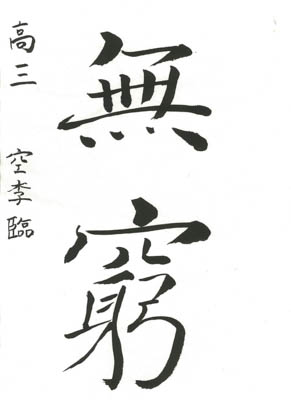 無窮
高三 空李臨